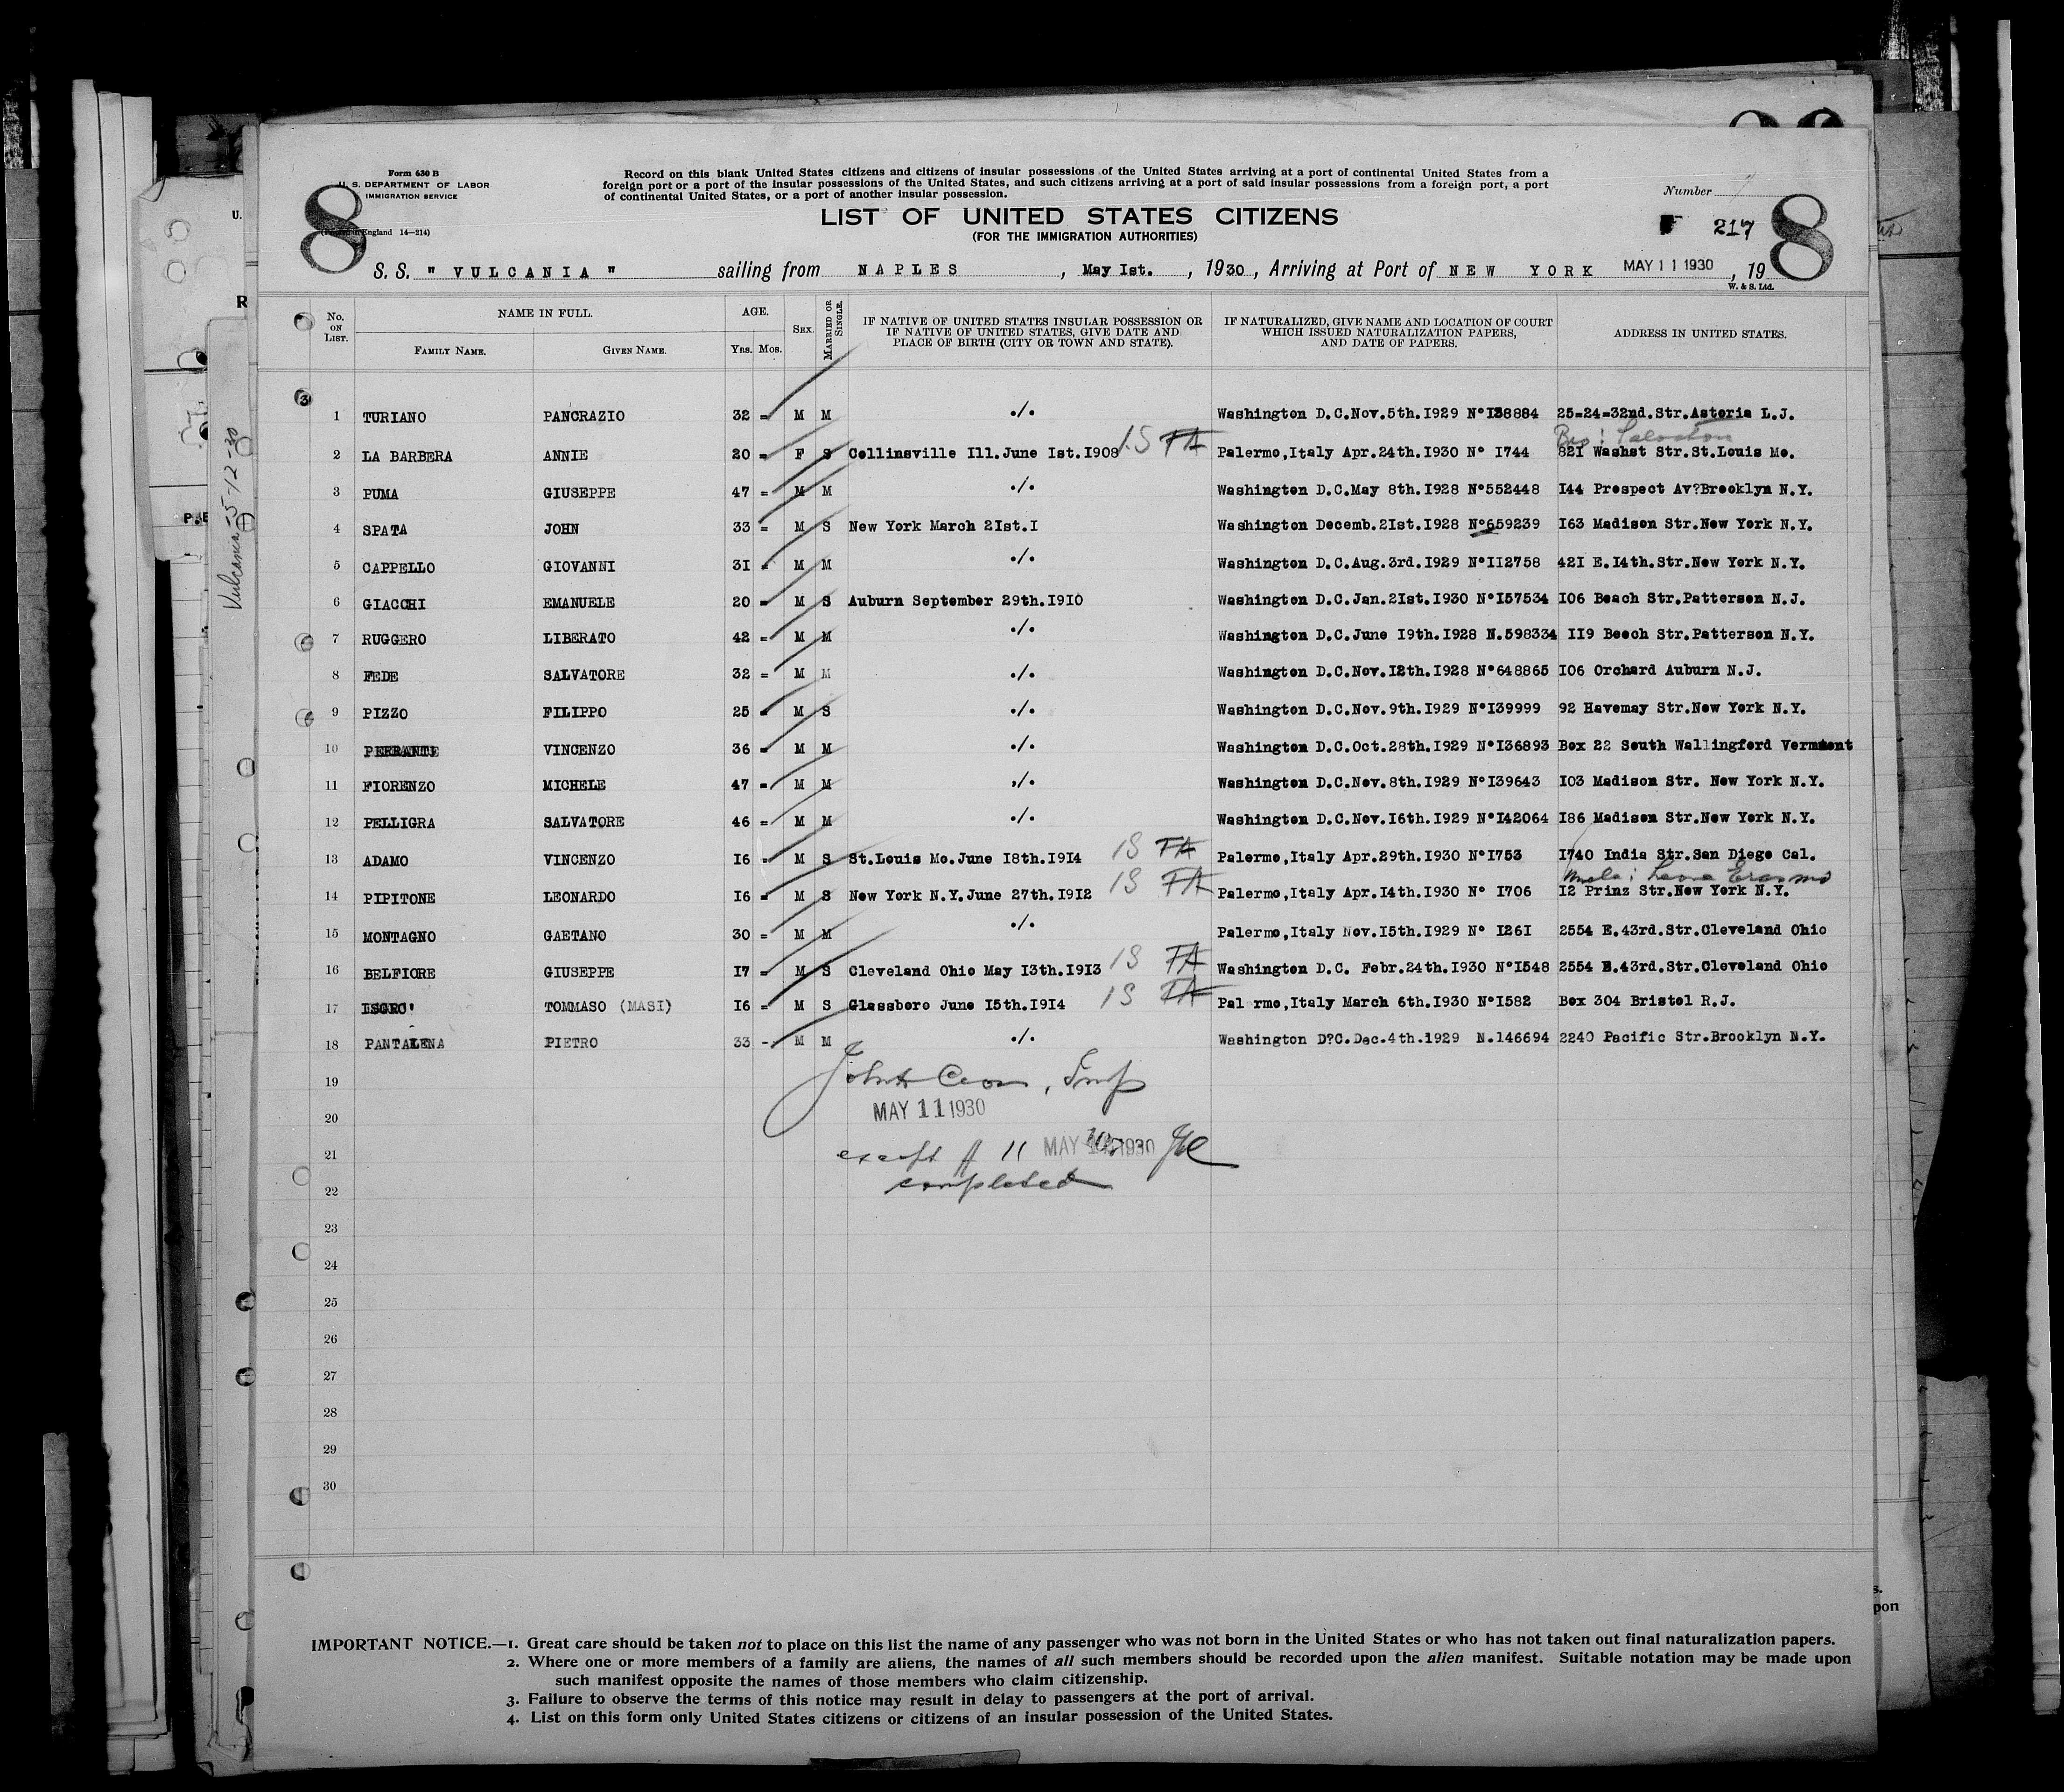 Form 630 B
U. S. DEPARTMENT OF LABOR
IMMIGRATION SERVICE
(Printed in England 14—214)
8
Record on this blank United States citizens and citizens of insular possessions of the United States arriving at a port of continental United States from a
foreign port or a port of the insular possessions of the United States, and such citizens arriving at a port of said insular possessions from a foreign port, a port
of continental United States, or a port of another insular possession.
Number
LIST OF UNITED STATES CITIZENS
(FOR THE IMMIGRATION AUTHORITIES)
217
8
S. S. " VULCANIA " sailing from NAPLES , May Ist. , 1930 , Arriving at Port of NEW YORK MAY 11 1930 , 19
W. & S. Ltd.
No. ON LIST.
NAME IN FULL.
FAMILY NAME. GIVEN NAME.
AGE.
Yrs. Mos.
SEX.
MARRIED OR SINGLE.
IF NATIVE OF UNITED STATES INSULAR POSSESSION OR
IF NATIVE OF UNITED STATES, GIVE DATE AND
PLACE OF BIRTH (CITY OR TOWN AND STATE).
IF NATURALIZED, GIVE NAME AND LOCATION OF COURT
WHICH ISSUED NATURALIZATION PAPERS,
AND DATE OF PAPERS.
ADDRESS IN UNITED STATES.
1 TURIANO PANCRAZIO 32 = M M ./. Washington D.C.Nov.5th.I929 N°I38884 25=24=32nd.Str.Astoria L.J.
2 LA BARBERA ANNIE 20 = F S Collinsville Ill.June Ist.I908 Palermo,Italy Apr.24th.I930 N° I744 82I Washst Str.St.Louis Mo.
3 PUMA GIUSEPPE 47 = M M ./. Washington D.C.May 8th.I928 N°552448 I44 Prospect Av?Brooklyn N.Y.
4 SPATA JOHN 33 = M S New York March 2Ist.I Washington Decemb.2Ist.I928 N°659239 I63 Madison Str.New York N.Y.
5 CAPPELLO GIOVANNI 3I = M M ./. Washington D.C.Aug.3rd.I929 N°II2758 42I E.I4th.Str.New York N.Y.
6 GIACCHI EMANUELE 20 = M S Auburn September 29th.I9I0 Washington D.C.Jan.2Ist.I930 N°I57534 I06 Beach Str.Patterson N.J.
7 RUGGERO LIBERATO 42 = M M ./. Washington D.C.June I9th.I928 N.598334 II9 Beech Str.Patterson N.Y.
8 FEDE SALVATORE 32 = M M ./. Washington D.C.Nov.I2th.I928 N°648865 I06 Orchard Auburn N.J.
9 PIZZO FILIPPO 25 = M S ./. Washington D.C.Nov.9th.I929 N°I39999 92 Havemay Str.New York N.Y.
10 VINCENZO 36 = M M ./. Washington D.C.Oct.28th.I929 N°I36893 Box 22 South Wallingford Vermment
11 FIORENZO MICHELE 47 = M M ./. Washington D.C.Nov.8th.I929 N°I39643 I03 Madison Str. New York N.Y.
12 PELLIGRA SALVATORE 46 = M M ./. Washington D.C.Nov.I6th.I929 N°I42064 I86 Madison Str.New York N.Y.
13 ADAMO VINCENZO I6 = M S St.Louis Mo.June I8th.I9I4 Palermo,Italy Apr.29th.I930 N°I753 I740 India Str.San Diego Cal.
14 PIPITONE LEONARDO I6 = M S New York N.Y.June 27th.I9I2 Palermo,Italy Apr.I4th.I930 N° I706 I2 Prinz Str.New York N.Y.
15 MONTAGNO GAETANO 30 = M M ./. Palermo,Italy Nov.I5th.I929 N° I26I 2554 E.43rd.Str.Cleveland Ohio
16 BELFIORE GIUSEPPE I7 = M S Cleveland Ohio May I3th.I9I3 Washington D.C. Febr.24th.I930 N°I548 2554 E.43rd.Str.Cleveland Ohio
17 ISGRO' TOMMASO (MASI) I6 = M S Glassboro June I5th.I9I4 Pal rmo,Italy March 6th.I930 N°I582 Box 304 Bristol R.J.
18 PANTALENA PIETRO 33 - M M ./. Washington D?C.Dec.4th.1929 N.146694 2240 Pacific Str.Brooklyn N.Y.
19
20 MAY 11 1930
21 except # 11 MAY 1930
22 completed
23
24
25
26
27
28
29
30
Vulcania 5-12-30
IMPORTANT NOTICE.—1. Great care should be taken not to place on this list the name of any passenger who was not born in the United States or who has not taken out final naturalization papers.
2. Where one or more members of a family are aliens, the names of all such members should be recorded upon the alien manifest. Suitable notation may be made upon
such manifest opposite the names of those members who claim citizenship.
3. Failure to observe the terms of this notice may result in delay to passengers at the port of arrival.
4. List on this form only United States citizens or citizens of an insular possession of the United States.